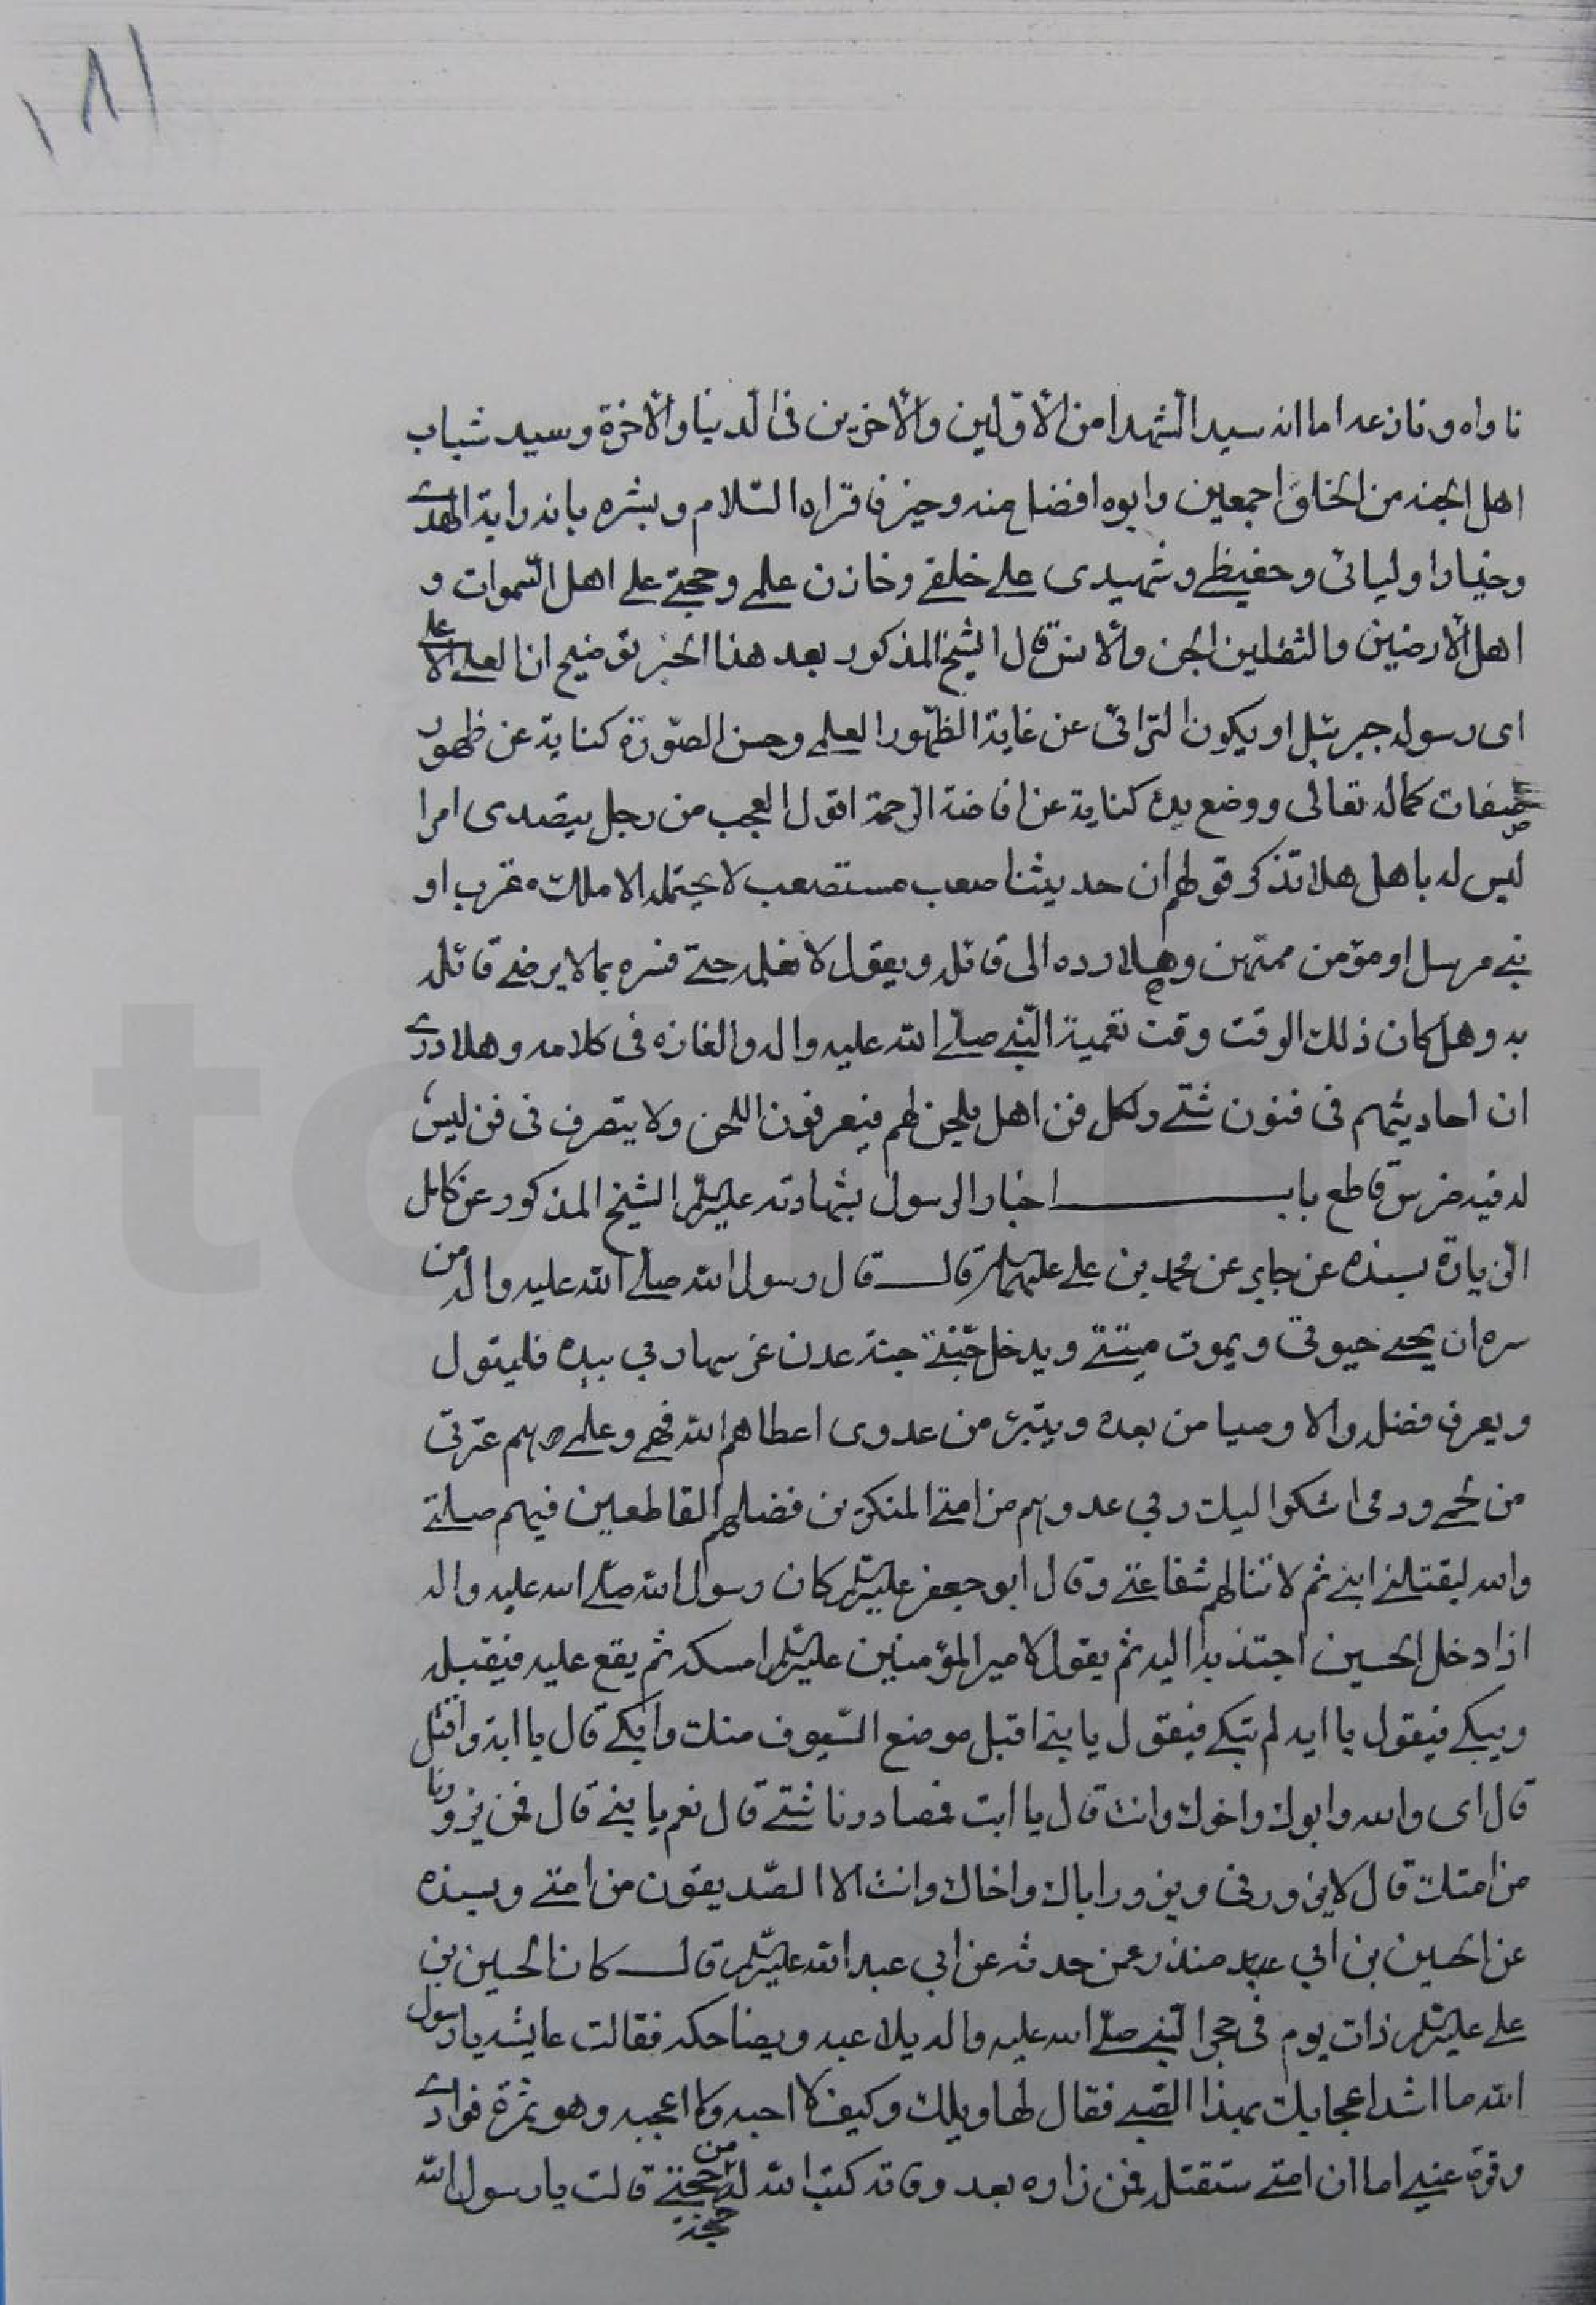 ١٨١
ناواه ونازعه اما انه سيد الشهدا من الأوّلين والأخرين فى الدنيا والأخرة وسيد شباب
اهل الجنه من الخلق اجمعين وابوه افضل منه وخير فاقراه السّلام وبشره بانه راية الهدى
وخيار اوليائى وحفيظے وشهيدى علے خلقے وخازن علمے وحجتے علے اهل السّموات و
اهل الأرضين والثقلين الجن والأنس قال الشيخ المذكور بعد هذا الخبر توضيح ان العلے الأعلے
اى رسوله جبرئيل او يكون الترائى عن غاية الظهور العلمے وحسن الصّورة كناية عن ظهور
صفات كماله تعالى ووضع يده كناية عن افاضة الرحمة اقول العجب من رجل يتصدى امرا
ليس له باهل هلا تذكر قولهم ان حديثنا صعب مستصعب لا يحتمله الا ملك مقرب او
نبے مرسل او مؤمن ممتحن وهلا رده الى قائله ويقول لا نعلمه حتے فسره بما لا يرضے قائله
به وهل كان ذلك الوقت وقت تعمية النبے صلّے الله عليه واله والغازه فى كلامه وهلا درى
ان احاديثهم فى فنون شتے ولكل فن اهل يلحن لهم فيعرفون اللحن ولا يتصرف فى فن ليس
له فيه ضرس قاطع باب اخبار الرسول بشهادته عليه السلم الشيخ المذكور عن كامل
الزيارة بسنده عن جابر عن محمد بن علے عليهما السلم قال قال رسول الله صلے الله عليه واله من
سره ان يحيے حيوتى ويموت ميتتے ويدخل جنتے جنة عدن غرسها ربي بيده فليتول
ويعرف فضله والاوصيا من بعده ويتبرئ من عدوى اعطاهم الله فهمے وعلمے هم عترتى
من لحمے ودمى اشكوا اليك ربي عدوهم من امتے المنكرين فضلهم القاطعين فيهم صلتے
والله ليقتلن ابنے ثم لا تنالهم شفاعتے وقال ابو جعفر عليه السلم كان رسول الله صلے الله عليه واله
اذا دخل الحسين اجتذبه اليه ثم يقول لامير المؤمنين عليه السلم امسكه ثم يقع عليه فيقبله
ويبكے فيقول يا ابه لم تبكے فيقول يا بنے اقبل موضع السّيوف منك وابكے قال يا ابه واقتل
قال اى والله وابوك واخوك وانت قال يا ابت فمصارعنا شتے قال نعم يا بنے قال فمن يزورنا
من امتك قال لا يزورنى ويزور اباك واخاك وانت الا الصّديقون من امتے وبسنده
عن الحسين بن ابي منذر عمن حدثه عن ابي عبد الله عليه السلم قال كان الحسين بن
علے عليه السلم ذات يوم فى حجر النبے صلّے الله عليه واله يلاعبه ويضاحكه فقالت عايشه يا رسول
الله ما اشد اعجابك بهذا الصّبے فقال لها ويلك وكيف لا احبه ولا اعجبه وهو ثمرة فوادى
وقرة عينے اما ان امتے ستقتله فمن زاره بعد وفاته كتب الله له حجة من حججے قالت يا رسول الله